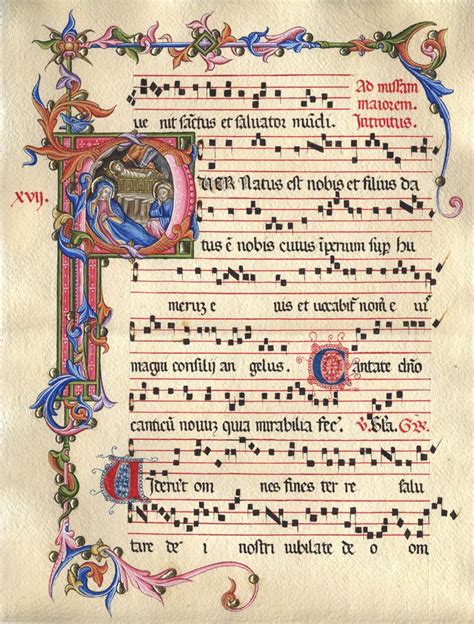 ue nit sanctus et saluator mundi. Ad missam
maiorem.
Introitus.
xvij.
PUER Natus est nobis et filius da
tus ē nobis cuius ip̄erium sup̄ hu
meruz e ius et uocabit̄ nom̄ e iuˢ
magni consilij an gelus. Cantate dn̄o
canticū nouuz quia mirabilia fec̄. v. Gl̄a. Gr.
Uiderūt om nes fines ter re salu
tare de i nostri iubilate de o om